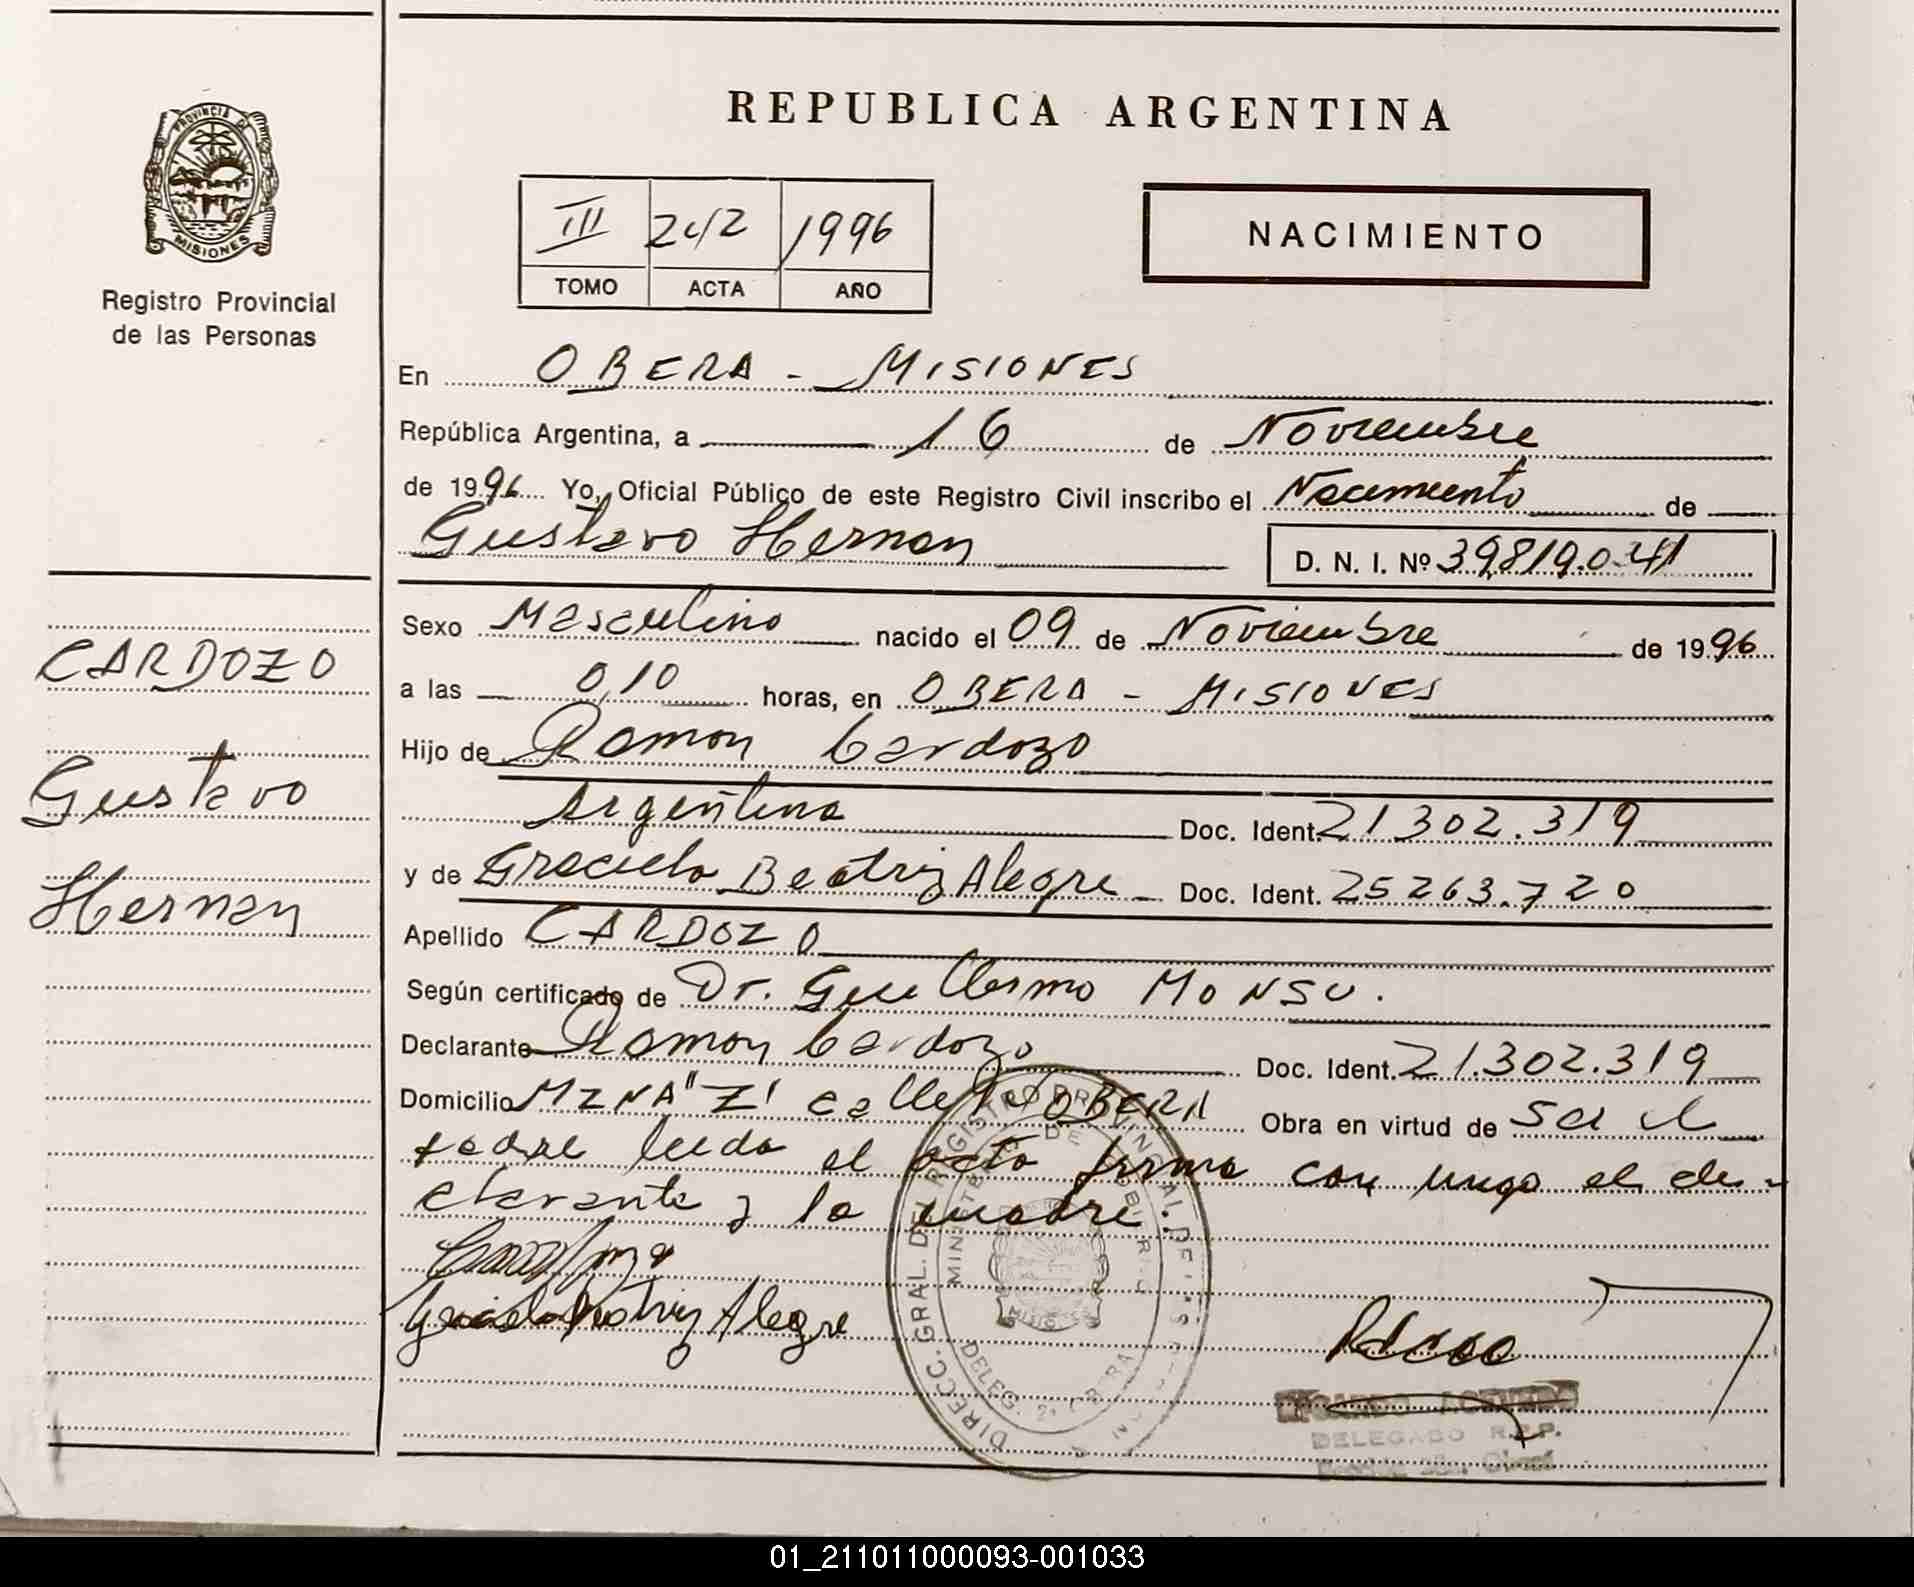 REPUBLICA ARGENTINA
PROVINCIA DE
MISIONES
Registro Provincial
de las Personas
III 242 1996
TOMO ACTA AÑO
NACIMIENTO
En OBERA - MISIONES
República Argentina, a 16 de Noviembre
de 1996 Yo, Oficial Público de este Registro Civil inscribo el Nacimiento de
Gustavo Hernan D. N. I. Nº 39.819.041
Sexo Masculino nacido el 09 de Noviembre de 1996
a las 0,10 horas, en OBERA - MISIONES
Hijo de Ramon Cardozo
Argentina Doc. Ident. 21302.319
y de Graciela Beatriz Alegre Doc. Ident. 25263.720
Apellido CARDOZO
Según certificado de Dr. Guillermo MONSU.
Declarante Ramon Cardozo Doc. Ident. 21.302.319
Domicilio MZNA "Z" calle OBERA Obra en virtud de ser el
padre leida el acta firma con migo el de-
clarante y la madre.
Graciela Beatriz Alegre
CARDOZO
Gustavo
Hernan
DIRECC. GRAL. DEL REGISTRO PROVINCIAL DE LAS PERSONAS
MINISTERIO DE GOBIERNO
DELEG. 2ª OBERA
DELEGADO R.P.P.
01_211011000093-001033